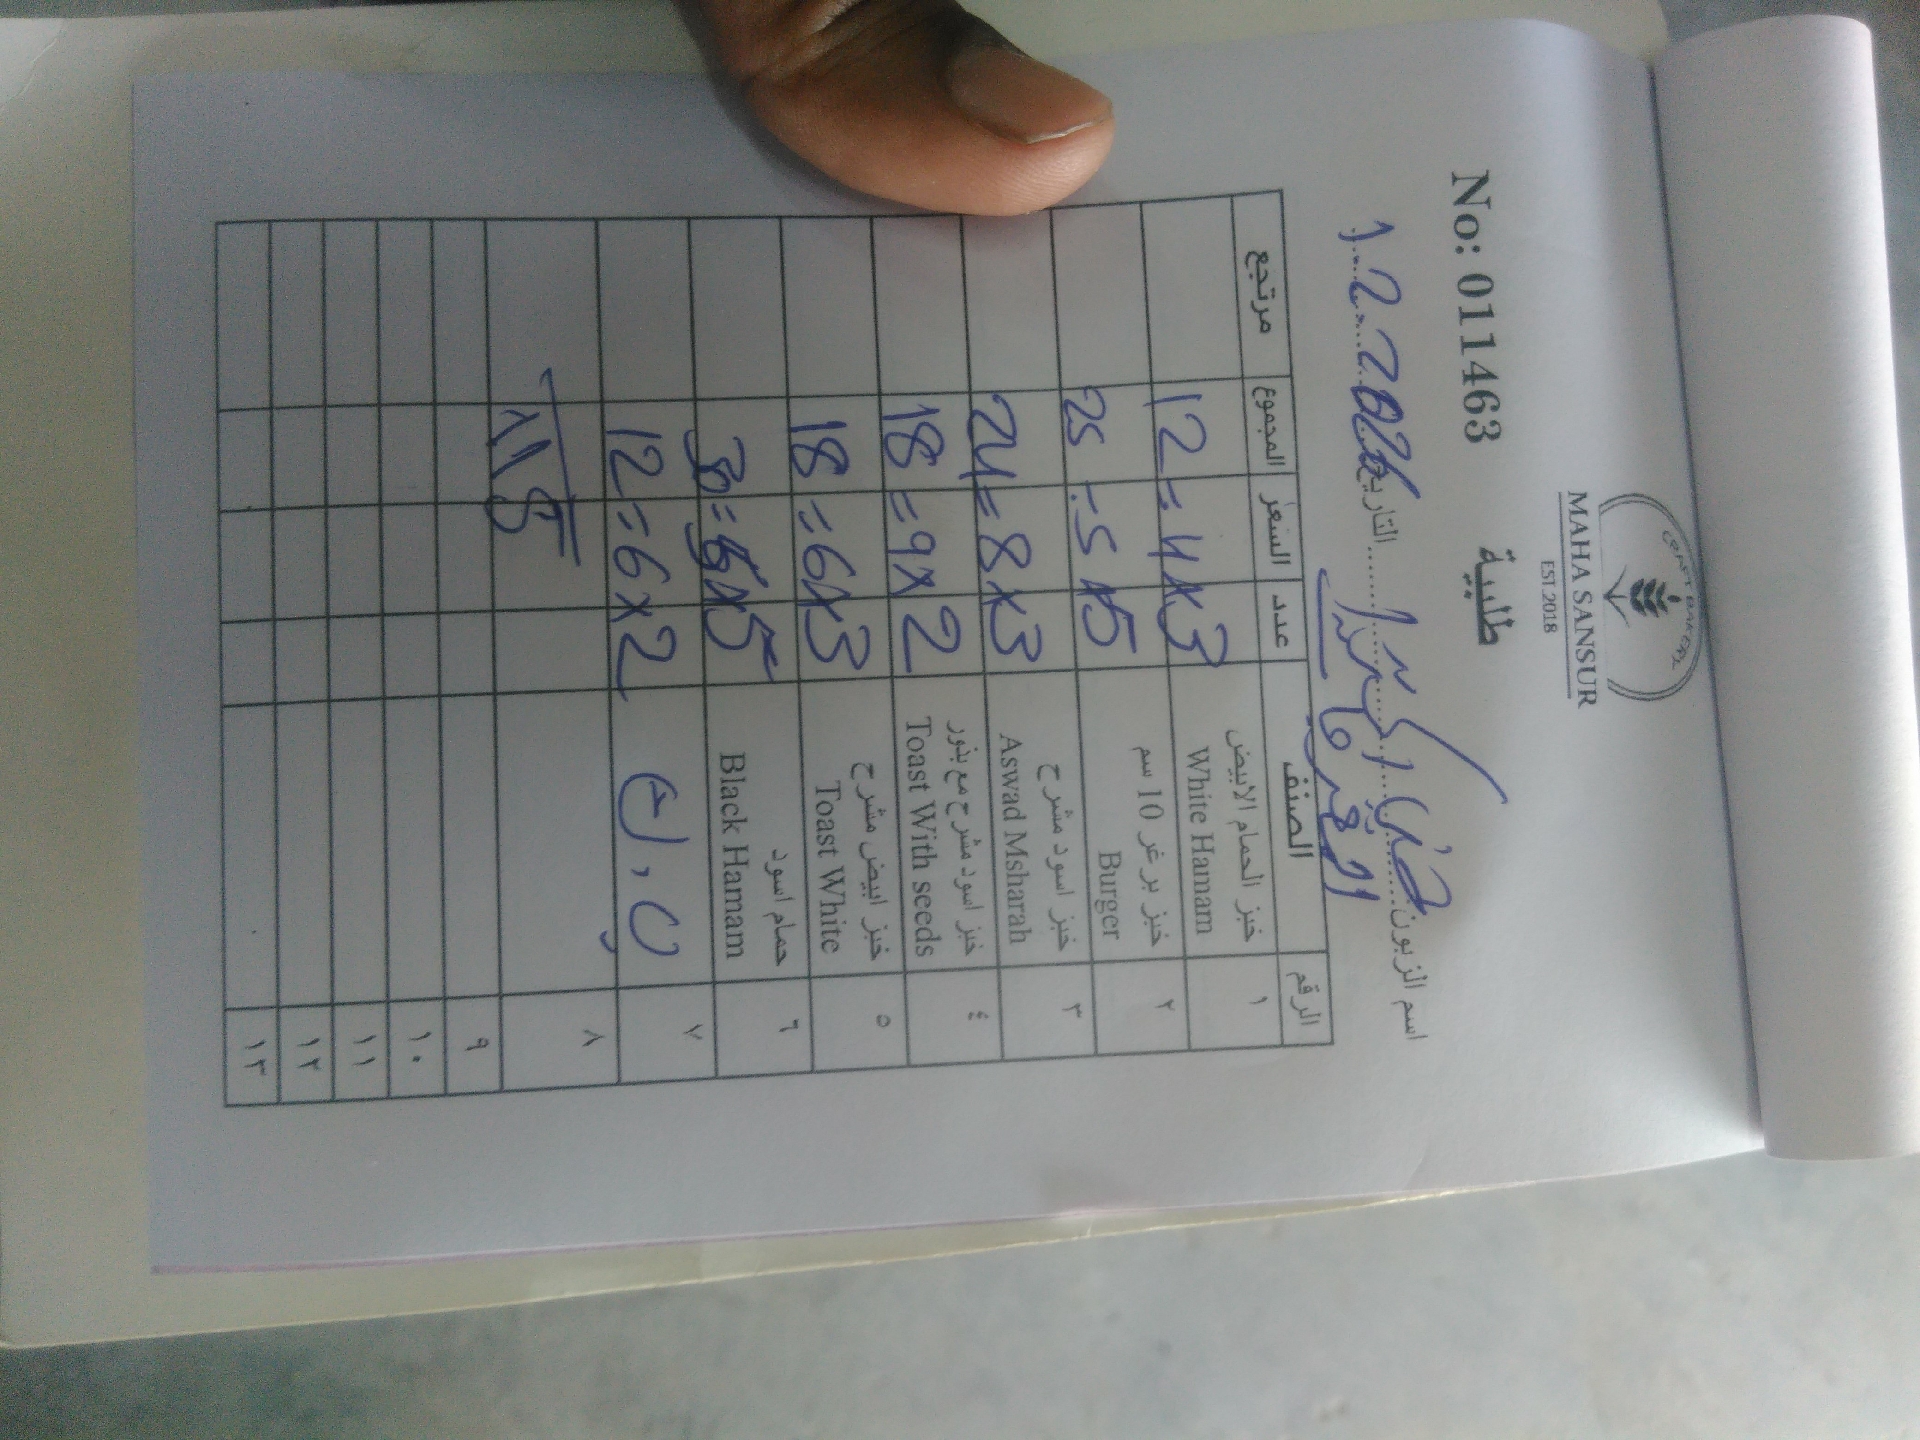 CRAFT BAKERY
MAHA SANSUR
EST.2018
No: 011463 طلبية
اسم الزبون التاريخ 1.2.2026
الرقم الصنف عدد السعر المجموع مرتجع
١ خبز الحمام الابيض White Hamam 3 x 4 = 12
٢ خبز برغر 10 سم Burger 5 x 5 = 25
٣ خبز اسود مشرح Aswad Msharah 3 x 8 = 24
٤ خبز اسود مشرح مع بذور Toast With seeds 2 x 9 = 18
٥ خبز ابيض مشرح Toast White 3 x 6 = 18
٦ حمام اسود Black Hamam 5 x = 30
٧ 2 x 6 = 12
٨
٩
١٠
١١
١٢
١٣